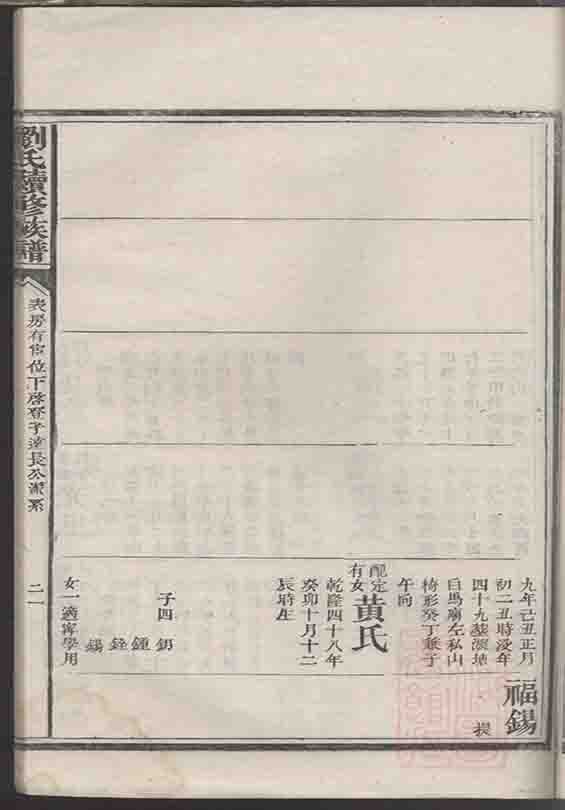 九年己丑正月
初二丑時淩年
四十九葬源塘
白馬廟左私山
椅形癸丁兼子
午向
配定
有女
黃氏
乾隆四十八年
癸卯十月十二
辰時生
子四 鈅
鍾
銓
錫
女一適甯學用
福錫
摸
劉氏續修族譜
表房有富位下啓登子達長公派系
二一